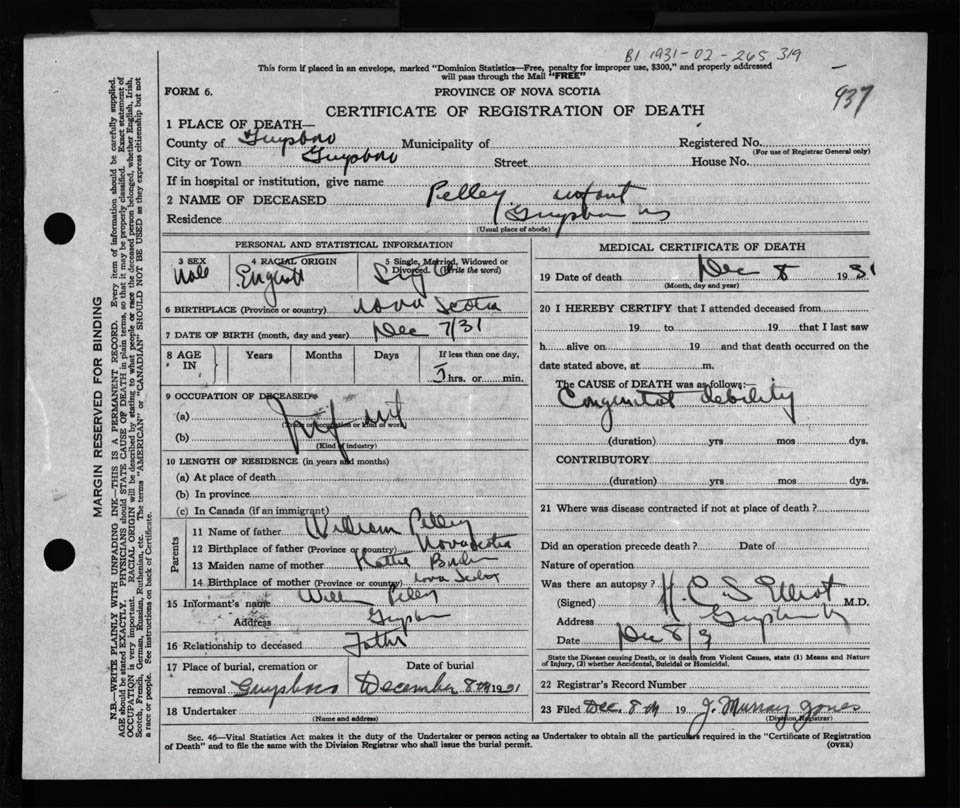 B1 1931-02-265 319
This form if placed in an envelope, marked "Dominion Statistics—Free, penalty for improper use, $300," and properly addressed
will pass through the Mail "FREE"
937
FORM 6.
PROVINCE OF NOVA SCOTIA
CERTIFICATE OF REGISTRATION OF DEATH
1 PLACE OF DEATH—
County of Guysboro Municipality of Registered No.
(For use of Registrar General only)
City or Town Guysboro Street House No.
If in hospital or institution, give name
2 NAME OF DECEASED Pelley infant
Residence Guysboro NS
(Usual place of abode)
MARGIN RESERVED FOR BINDING
N.B.—WRITE PLAINLY WITH UNFADING INK—THIS IS A PERMANENT RECORD. Every item of information should be carefully supplied.
AGE should be stated EXACTLY. PHYSICIANS should STATE CAUSE OF DEATH in plain terms, so that it may be properly classified. Exact statement of
OCCUPATION is very important. RACIAL ORIGIN will be described by stating to what people or race the deceased person belonged, whether English, Irish,
Scotch, French, German, Russian, Ruthenian, etc. The terms "AMERICAN" or "CANADIAN" SHOULD NOT BE USED as they express citizenship but not
a race or people. See instructions on back of Certificate.
PERSONAL AND STATISTICAL INFORMATION
3 SEX 4 RACIAL ORIGIN 5 Single, Married, Widowed or
Divorced. (Write the word)
Male English Sig
6 BIRTHPLACE (Province or country) Nova Scotia
7 DATE OF BIRTH (month, day and year) Dec 7/31
8 AGE IN Years Months Days If less than one day,
5 hrs. or min.
9 OCCUPATION OF DECEASED
(a) Infant
(Trade or occupation or kind of work)
(b)
(Kind of industry)
10 LENGTH OF RESIDENCE (in years and months)
(a) At place of death
(b) In province
(c) In Canada (if an immigrant)
Parents
11 Name of father William Pelley
12 Birthplace of father (Province or country) Nova Scotia
13 Maiden name of mother Hattie
14 Birthplace of mother (Province or country) Nova Scotia
15 Informant's name Will Pelley
Address Guysboro
16 Relationship to deceased Father
17 Place of burial, cremation or removal Guysboro
Date of burial December 8th 1931
18 Undertaker
(Name and address)
MEDICAL CERTIFICATE OF DEATH
19 Date of death Dec 8 1931
(Month, day and year)
20 I HEREBY CERTIFY that I attended deceased from
19 to 19 that I last saw
h alive on 19 and that death occurred on the
date stated above, at m.
The CAUSE of DEATH was as follows:—
Congenital debility
(duration) yrs mos dys.
CONTRIBUTORY
(duration) yrs. mos dys.
21 Where was disease contracted if not at place of death?
Did an operation precede death? Date of
Nature of operation
Was there an autopsy?
(Signed) H. C. S. Elliot M.D.
Address Guysboro
Date Dec 8/3
State the Disease causing Death, or in death from Violent Causes, state (1) Means and Nature
of Injury, (2) whether Accidental, Suicidal or Homicidal.
22 Registrar's Record Number
23 Filed Dec. 8th 19 J. Murray Jones
(Division Registrar)
Sec. 46—Vital Statistics Act makes it the duty of the Undertaker or person acting as Undertaker to obtain all the particulars required in the "Certificate of Registration
of Death" and to file the same with the Division Registrar who shall issue the burial permit.
(OVER)